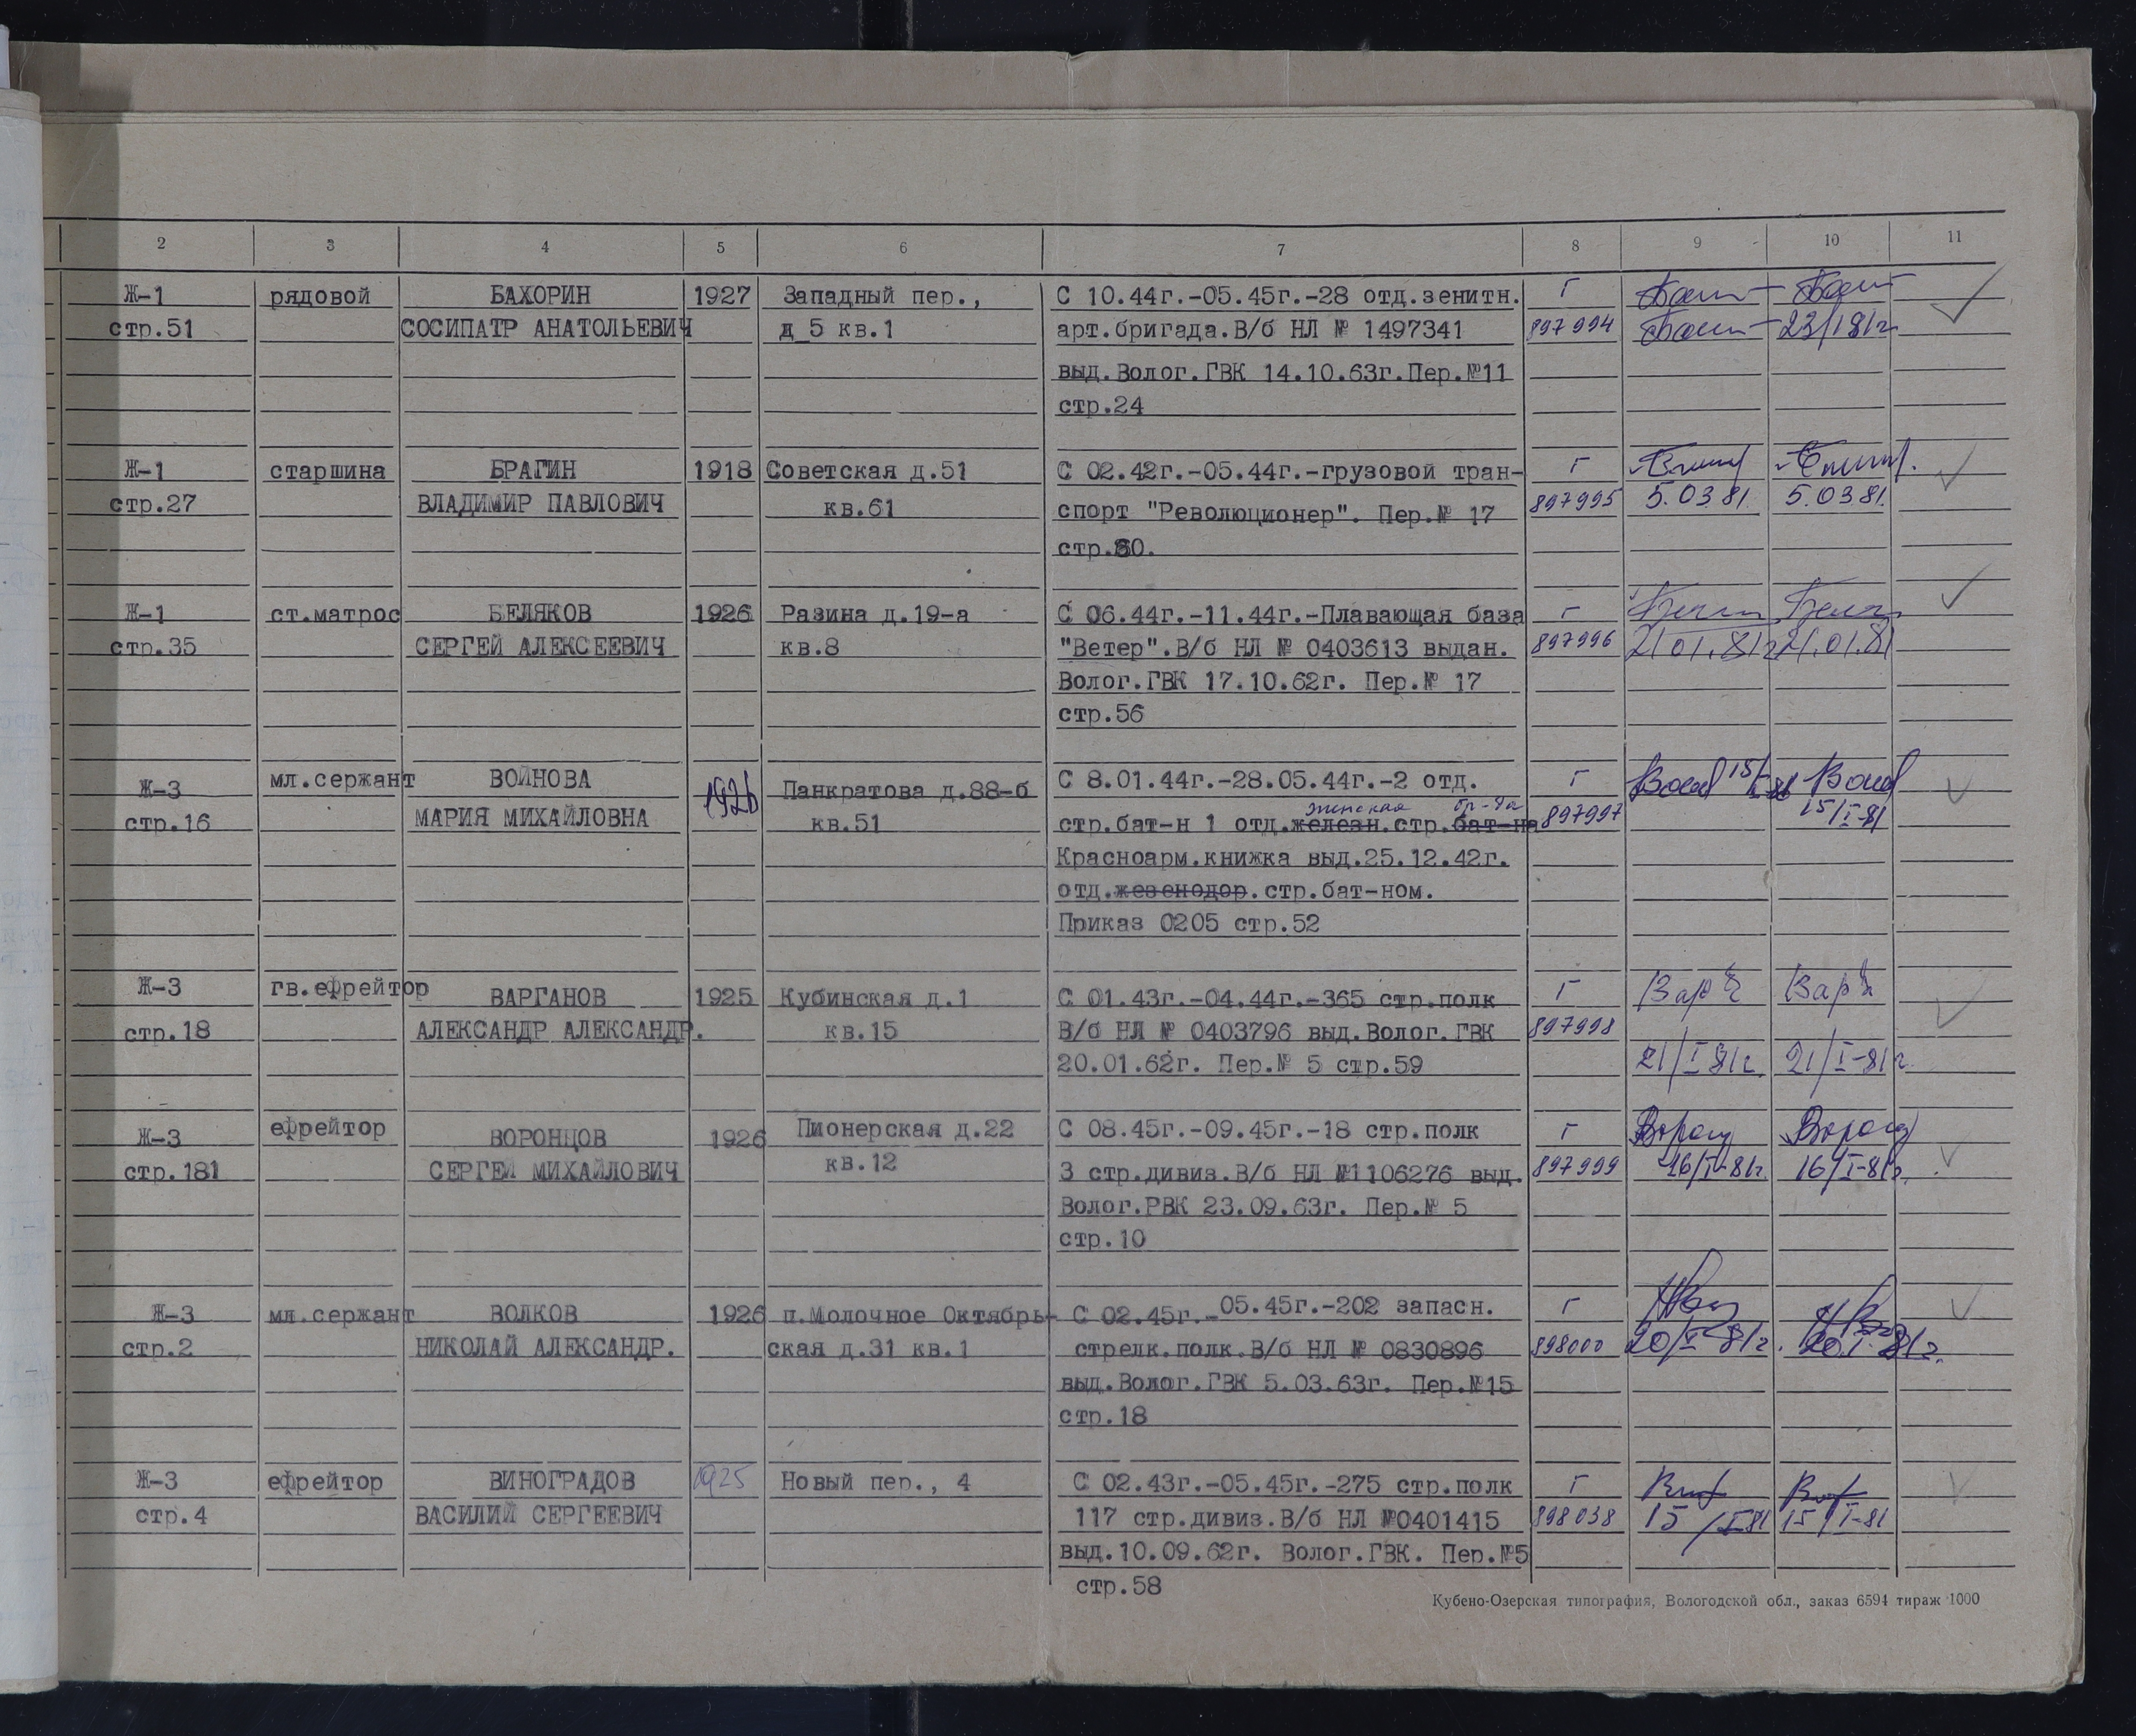 2 3 4 5 6 7 8 9 10 11
Ж-1 рядовой БАХОРИН 1927 Западный пер., С 10.44г.-05.45г.-28 отд.зенитн. Г
стр.51 СОСИПАТР АНАТОЛЬЕВИЧ д 5 кв.1 арт.бригада.В/б НЛ № 1497341 897994 23/I 81г
выд.Волог.ГВК 14.10.63г.Пер.№11
стр.24
Ж-1 старшина БРАГИН 1918 Советская д.51 С 02.42г.-05.44г.-грузовой тран- Г
стр.27 ВЛАДИМИР ПАВЛОВИЧ кв.61 спорт "Революционер". Пер.№ 17 897995 5.03 81. 5.03 81.
стр.80.
Ж-1 ст.матрос БЕЛЯКОВ 1926 Разина д.19-а С 06.44г.-11.44г.-Плавающая база Г
стр.35 СЕРГЕЙ АЛЕКСЕЕВИЧ кв.8 "Ветер".В/б НЛ № 0403613 выдан. 897996 21.01.81г 21.01.81
Волог.ГВК 17.10.62г. Пер.№ 17
стр.56
Ж-3 мл.сержант ВОЙНОВА 1926 Панкратова д.88-б С 8.01.44г.-28.05.44г.-2 отд. Г 15/I-81
женская бр-да
стр.16 МАРИЯ МИХАЙЛОВНА кв.51 стр.бат-н 1 отд.железн.стр.бат-на 897997 15/I-81
Красноарм.книжка выд.25.12.42г.
отд.жезенодор.стр.бат-ном.
Приказ 0205 стр.52
Ж-3 гв.ефрейтор ВАРГАНОВ 1925 Кубинская д.1 С 01.43г.-04.44г.-365 стр.полк Г
стр.18 АЛЕКСАНДР АЛЕКСАНДР. кв.15 В/б НЛ № 0403796 выд.Волог.ГВК 897998
20.01.62г. Пер.№ 5 стр.59 21/I 81г. 21/I-81г.
Ж-3 ефрейтор ВОРОНЦОВ 1926 Пионерская д.22 С 08.45г.-09.45г.-18 стр.полк Г
стр.181 СЕРГЕЙ МИХАЙЛОВИЧ кв.12 3 стр.дивиз.В/б НЛ №1106276 выд. 897999 16/I-81г. 16/I-81г.
Волог.РВК 23.09.63г. Пер.№ 5
стр.10
Ж-3 мл.сержант ВОЛКОВ 1926 п.Молочное Октябрь- С 02.45г.-05.45г.-202 запасн. Г
стр.2 НИКОЛАЙ АЛЕКСАНДР. ская д.31 кв.1 стрелк.полк.В/б НЛ № 0830896 898000 20/I-81г. 20.I.81г.
выд.Волог.ГВК 5.03.63г. Пер.№15
стр.18
Ж-3 ефрейтор ВИНОГРАДОВ 1925 Новый пер., 4 С 02.43г.-05.45г.-275 стр.полк Г
стр.4 ВАСИЛИЙ СЕРГЕЕВИЧ 117 стр.дивиз.В/б НЛ №0401415 898038 15/I81 15/I-81
выд.10.09.62г. Волог.ГВК. Пер.№5
стр.58
Кубено-Озерская типография, Вологодской обл., заказ 6594 тираж 1000